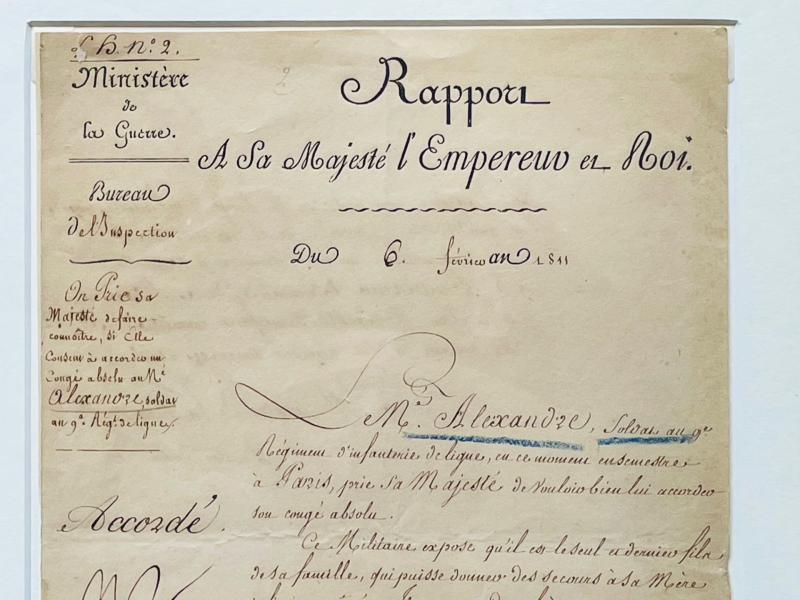 B. n.º 2.
Ministère
de
la Guerre.
Bureau
de l'Inspection
On Prie sa
Majesté de faire
connoître, si Elle
Consent à accorder un
Congé absolu au Né
Alexandre, soldat
au 9.e Régt. de ligne.
Accordé.
Rapport
A Sa Majesté l'Empereur et Roi.
Du 6. février an 1811
Le Alexandre, Soldat au 9e
Régiment d'infanterie de ligne, en ce moment en semestre
à Paris, prie Sa Majesté de Vouloir bien lui accorder
son congé absolu.
Ce Militaire expose qu'il est le seul et dernier fils
de sa famille, qui puisse donner des secours à sa Mère